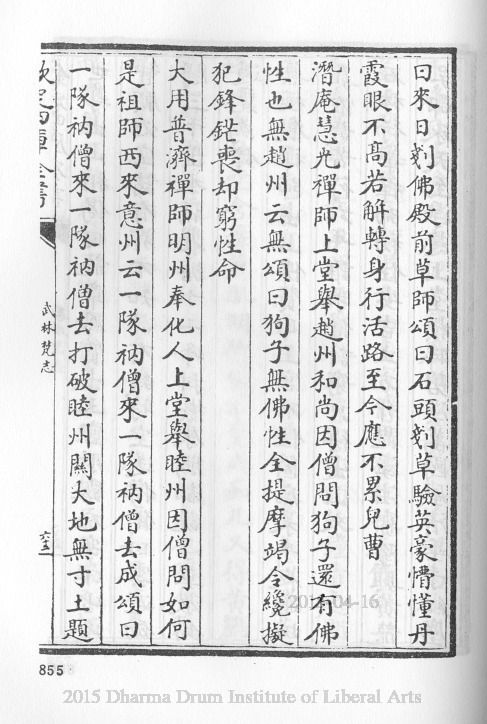 曰來日剗佛殿前草師頌曰石頭剗草驗英豪懵懂丹
霞眼不髙若解轉身行活路至今應不累兒曹
潛庵慧光禪師上堂舉趙州和尚因僧問狗子還有佛
性也無趙州云無頌曰狗子無佛性全提摩竭令纔擬
犯鋒鋩喪却窮性命
大用普濟禪師明州奉化人上堂舉睦州因僧問如何
是祖師西來意州云一隊衲僧來一隊衲僧去成頌曰
一隊衲僧來一隊衲僧去打破睦州關大地無寸土題
欽定四庫全書
武林梵志
855
2015-04-16
2015 Dharma Drum Institute of Liberal Arts